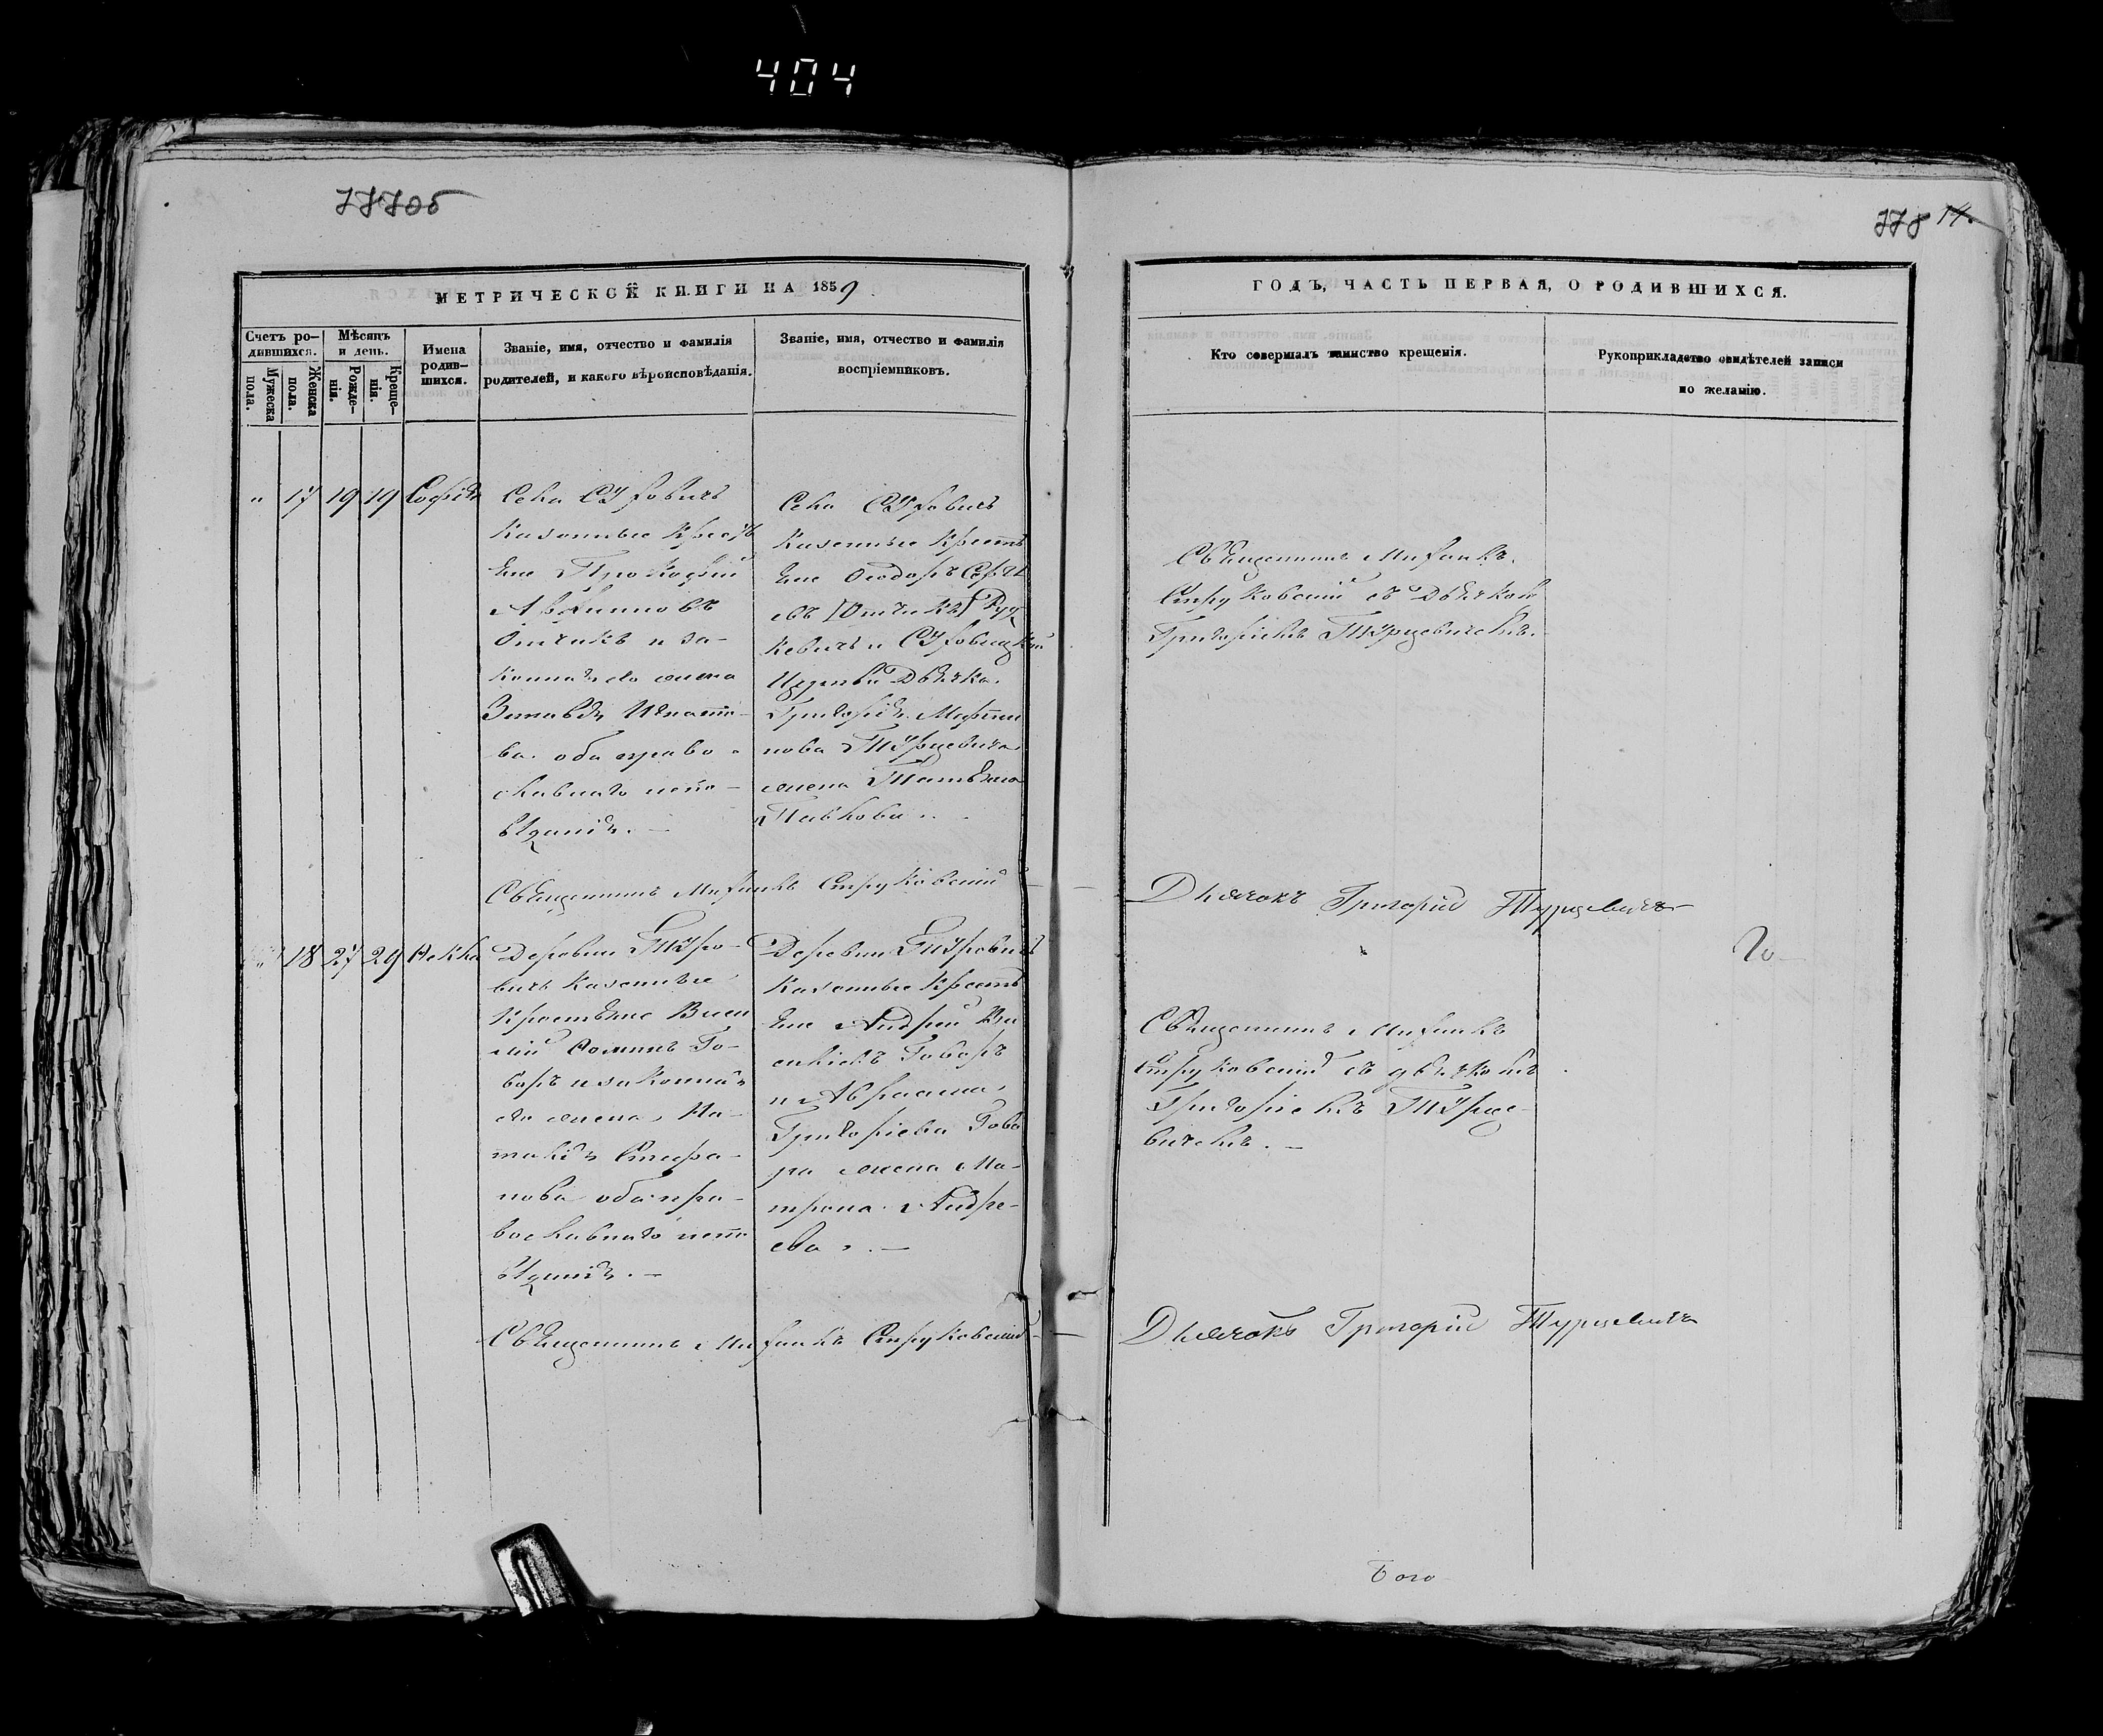 404
777об
778 14.
МЕТРИЧЕСКОЙ КНИГИ НА 1859
ГОДЪ, ЧАСТЬ ПЕРВАЯ, О РОДИВШИХСЯ.
Счетъ ро-
дившихся.
Мужеска
пола.
Женска
пола.
Мѣсяцъ
и день.
Рожде-
нія.
Креще-
нія.
Имена
родив-
шихся.
Званіе, имя, отчество и фамилія
родителей, и какого вѣроисповѣданія.
Званіе, имя, отчество и фамилія
воспріемниковъ.
Кто совершалъ таинство крещенія.
Рукоприкладство свидѣтелей записи
по желанію.
" 17 19 19 Софія
Села
Казенные Крестъ
яне Прокофій
и за-
конная его жена
Игнато-
ва оба право-
славнаго испо-
вѣданія. —
Села
Казенные Крестъ
яне Ѳеодоръ
и
Церкви Дьячка
Григорія Марти
нова Турцевича
жена Татьяна
Павлова
Священникъ Михаилъ
Струковскій съ Дьячкомъ
Григоріемъ Турцевичемъ.
Священникъ Михаилъ Струковскій —
Дьячокъ Григорій Турцевичъ
" 18 27 29 Ѳекла
Деревни Туро-
вичъ Казенные
Крестьяне Васи
лій Ѳоминъ Го-
варъ и законная
его жена На-
талія Стефа-
нова оба пра-
вославнаго испо
вѣданія. —
Деревни Туровичъ
Казенные Крестъ
яне Андрей Ва
сильевъ Говоръ
и Авраама
Григоріева Гова
ра жена Ма-
трона Андре-
ева. —
Священникъ Михаилъ
Струковскій съ дьячкомъ
Григоріемъ Турце-
вичемъ. —
Го
Священникъ Михаилъ Струковскій —
Дьячокъ Григорій Турцевичъ
Бого